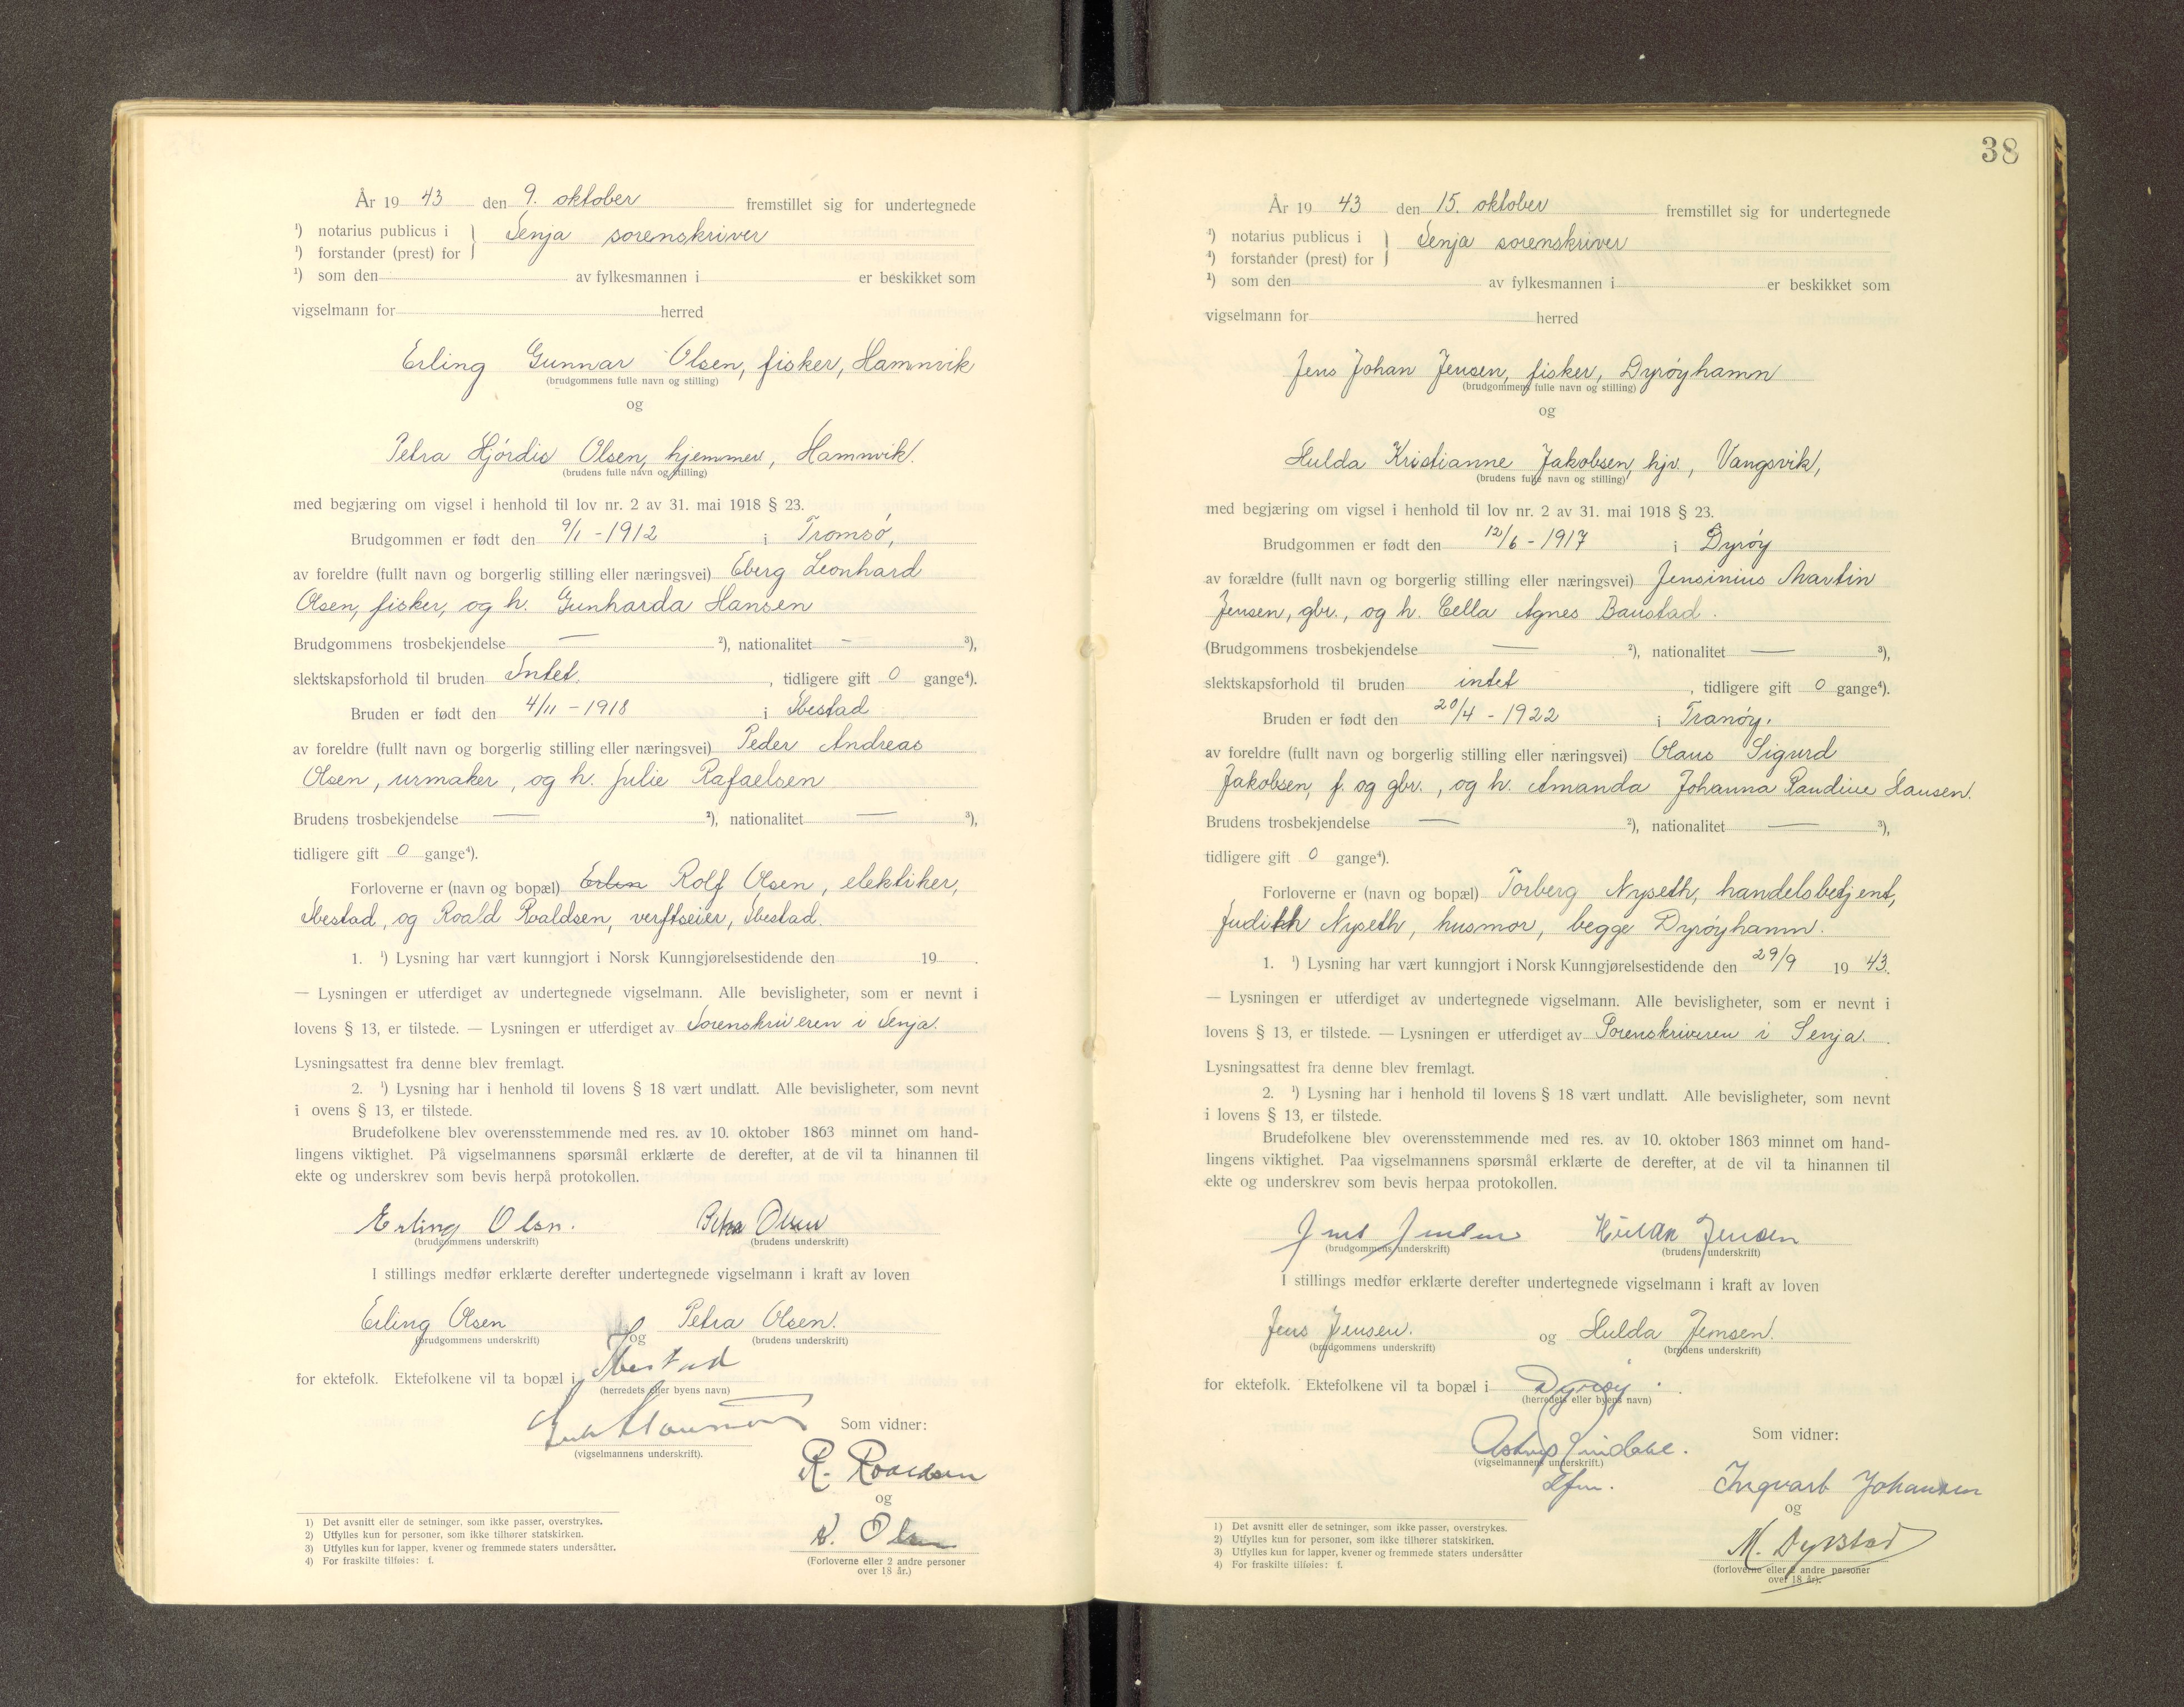 År 19 43 den 9. oktober fremstillet sig for undertegnede
¹) notarius publicus i } Senja sorenskriver
¹) forstander (prest) for
¹) som den av fylkesmannen i er beskikket som
vigselmann for herred
Erling Gunnar Olsen, fisker, Hamnvik
(brudgommens fulle navn og stilling)
og
Petra Hjórdis Olsen, hjemmev, Hamnvik.
(brudens fulle navn og stilling)
med begjæring om vigsel i henhold til lov nr. 2 av 31. mai 1918 § 23.
Brudgommen er født den 9/1 - 1912 i Tromsó,
av foreldre (fullt navn og borgerlig stilling eller næringsvei) Eberg Leonhard
Olsen, fisker, og h. Gunharda Hansen
Brudgommens trosbekjendelse — ²), nationalitet — ³),
slektskapsforhold til bruden Intet. , tidligere gift 0 gange⁴).
Bruden er født den 4/11 - 1918 i Ibestad
av foreldre (fullt navn og borgerlig stilling eller næringsvei) Peder Andreas
Olsen, urmaker, og h. Julie Rafaelsen
Brudens trosbekjendelse — ²), nationalitet — ³),
tidligere gift 0 gange⁴).
Forloverne er (navn og bopæl) Erlin Rolf Olsen, elektiker,
Ibestad, og Roald Roaldsen, verftseier, Ibestad.
1. ¹) Lysning har vært kunngjort i Norsk Kunngjørelsestidende den 19 .
— Lysningen er utferdiget av undertegnede vigselmann. Alle bevisligheter, som er nevnt i
lovens § 13, er tilstede. — Lysningen er utferdiget av Sorenskriveren i Senja.
Lysningsattest fra denne blev fremlagt.
2. ¹) Lysning har i henhold til lovens § 18 vært undlatt. Alle bevisligheter, som nevnt
i ovens § 13, er tilstede.
Brudefolkene blev overensstemmende med res. av 10. oktober 1863 minnet om hand-
lingens viktighet. På vigselmannens spørsmål erklærte de derefter, at de vil ta hinannen til
ekte og underskrev som bevis herpå protokollen.
Erling Olsn. Petra Olsen
(brudgommens underskrift) (brudens underskrift)
I stillings medfør erklærte derefter undertegnede vigselmann i kraft av loven
Erling Olsen og Petra Olsen.
(brudgommens underskrift) (brudens underskrift)
for ektefolk. Ektefolkene vil ta bopæl i Ibestad
(herredets eller byens navn)
(vigselmannens underskrift).
Som vidner:
R. Roaldsen
og
R. Olsen
(Forloverne eller 2 andre personer
over 18 år.)
1) Det avsnitt eller de setninger, som ikke passer, overstrykes.
2) Utfylles kun for personer, som ikke tilhører statskirken.
3) Utfylles kun for lapper, kvener og fremmede staters undersåtter.
4) For fraskilte tilføies: f.
38
År 19 43 den 15. oktober fremstillet sig for undertegnede
¹) notarius publicus i } Senja sorenskriver
¹) forstander (prest) for
¹) som den av fylkesmannen i er beskikket som
vigselmann for herred
Jens Johan Jensen, fisker, Dyróyhamn
(brudgommens fulle navn og stilling)
og
Hulda Kristianne Jakobsen, hjv., Vangsvik,
(brudens fulle navn og stilling)
med begjæring om vigsel i henhold til lov nr. 2 av 31. mai 1918 § 23.
Brudgommen er født den 12/6 - 1917 i Dyróy
av forældre (fullt navn og borgerlig stilling eller næringsvei) Jensinius Martin
Jensen, gbr., og h. Cella Agnes Baustad.
(Brudgommens trosbekjendelse — ²), nationalitet — ³),
slektskapsforhold til bruden intet , tidligere gift 0 gange⁴).
Bruden er født den 20/4 - 1922 i Tranóy.
av foreldre (fullt navn og borgerlig stilling eller næringsvei) Olaus Sigurd
Jakobsen, f. og gbr., og h. Amanda Johanna Randine Hansen.
Brudens trosbekjendelse — ²), nationalitet — ³),
tidligere gift 0 gange⁴).
Forloverne er (navn og bopæl) Torberg Nyseth, handelsbetjent,
Judikk Nyseth, husmor, begge Dyróyhamn.
1. ¹) Lysning har vært kunngjort i Norsk Kunngjørelsestidende den 29/9 19 43.
— Lysningen er utferdiget av undertegnede vigselmann. Alle bevisligheter, som er nevnt i
lovens § 13, er tilstede. — Lysningen er utferdiget av Sorenskriveren i Senja.
Lysningsattest fra denne blev fremlagt.
2. ¹) Lysning har i henhold til lovens § 18 vært undlatt. Alle bevisligheter, som nevnt
i lovens § 13, er tilstede.
Brudefolkene blev overensstemmende med res. av 10. oktober 1863 minnet om hand-
lingens viktighet. Paa vigselmannens spørsmål erklærte de derefter, at de vil ta hinannen til
ekte og underskrev som bevis herpaa protokollen.
Jens Jensen Hulda Jensen
(brudgommens underskrift) (brudens underskrift)
I stillings medfør erklærte derefter undertegnede vigselmann i kraft av loven
Jens Jensen. og Hulda Jensen.
(brudgommens underskrift) (brudens underskrift)
for ektefolk. Ektefolkene vil ta bopæl i Dyrøy.
(herredets eller byens navn)
(vigselmannens underskrift.)
Som vidner:
Ingvart Johansen
og
M. Dyrstad
(forloverne eller 2 andre personer
over 18 år).
1) Det avsnitt eller de setninger, som ikke passer, overstrykes.
2) Utfylles kun for personer, som ikke tilhører statskirken.
3) Utfylles kun for lapper, kvener og fremmede staters undersåtter
4) For fraskilte tilføies: f.